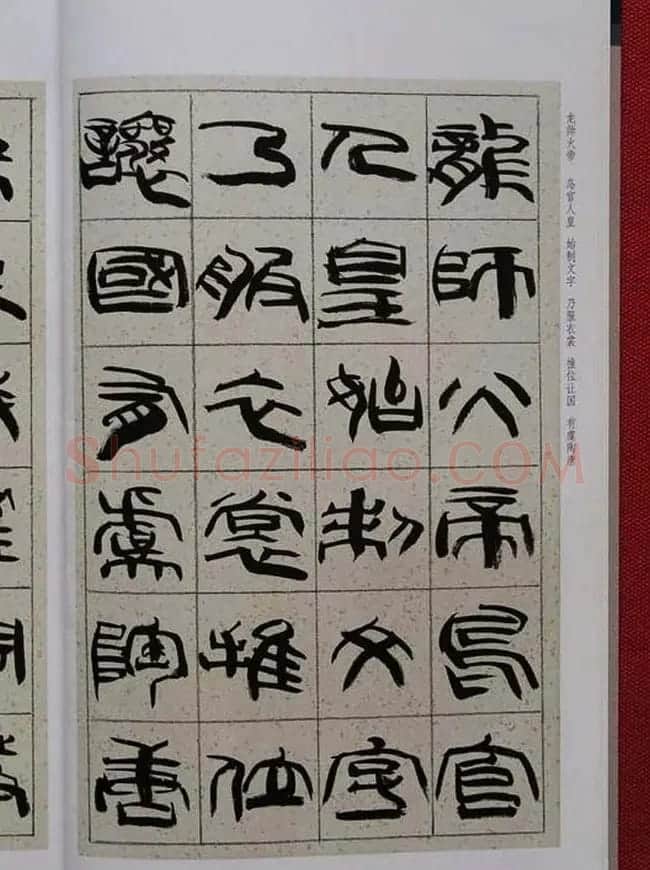 龍師火帝鳥官
人皇始制文字
乃服衣裳推位
讓國有虞陶唐
龙师火帝 鸟官人皇 始制文字 乃服衣裳 推位让国 有虞陶唐
Shufaziliao.COM